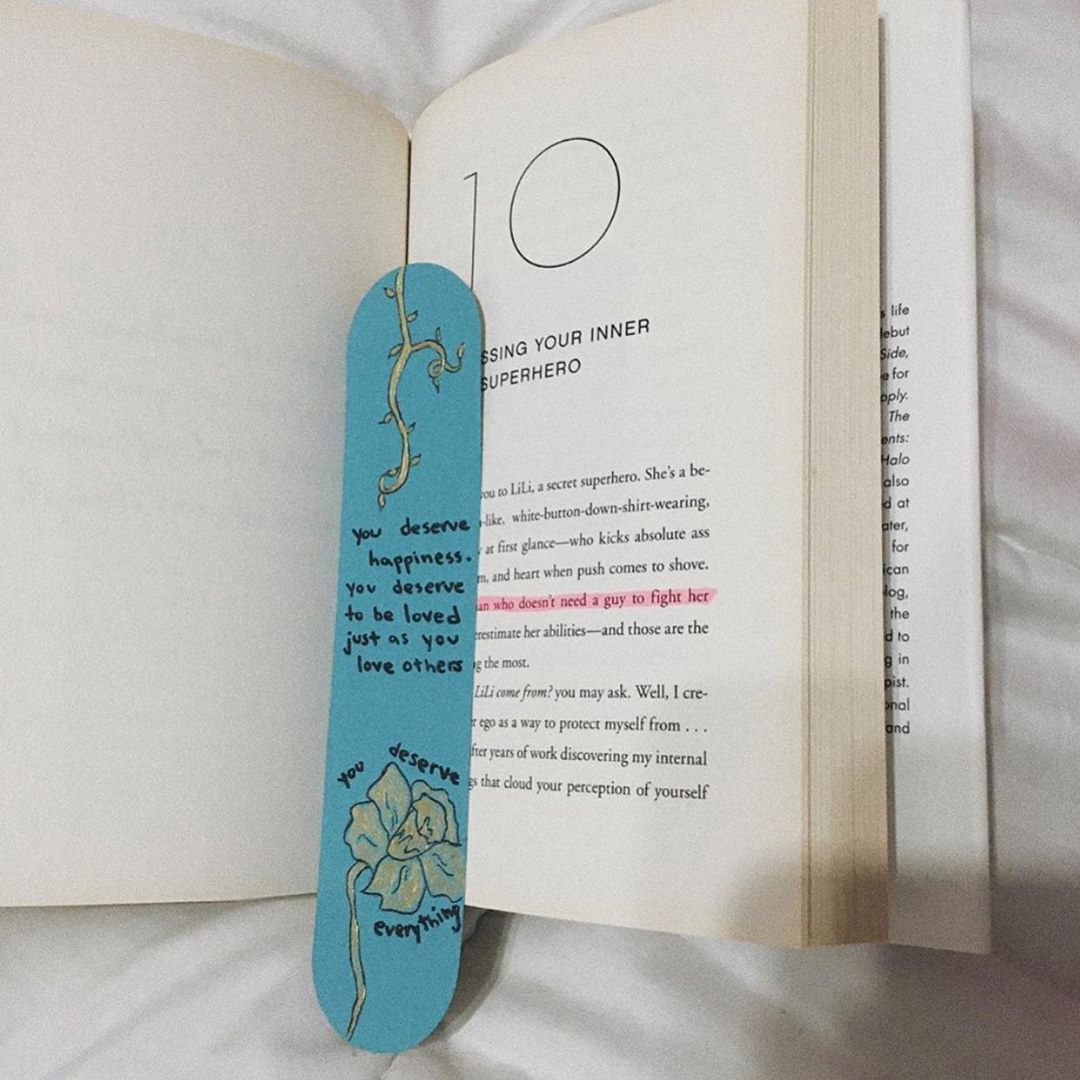 10
SSING YOUR INNER
SUPERHERO
you to LiLi, a secret superhero. She's a be-
-like, white-button-down-shirt-wearing,
at first glance—who kicks absolute ass
and heart when push comes to shove.
who doesn't need a guy to fight her
her abilities—and those are the
the most.
LiLi come from? you may ask. Well, I cre-
ego as a way to protect myself from . . .
years of work discovering my internal
that cloud your perception of yourself
you deserve
happiness.
you deserve
to be loved
just as you
love others
you deserve
everything
life
Side,
for
The
Halo
also
at
for
the
to
in
and